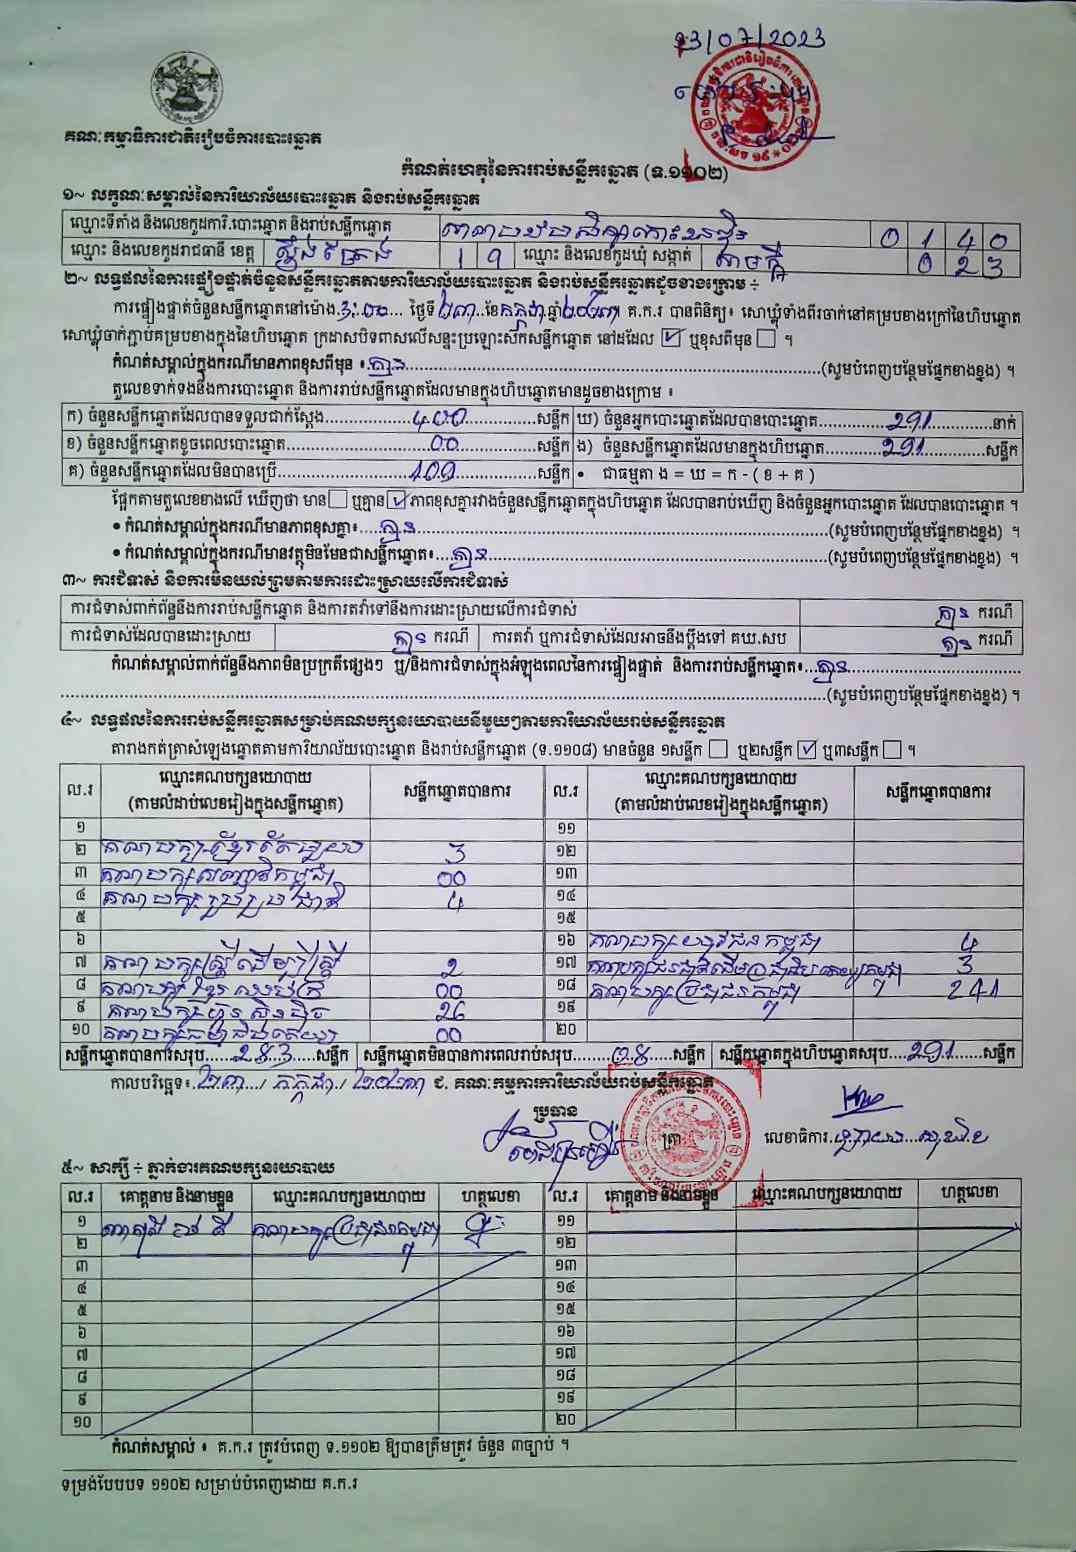 23/07/2023
គណៈកម្មាធិការជាតិរៀបចំការបោះឆ្នោត
កំណត់ហេតុនៃការរាប់សន្លឹកឆ្នោត (ទ.១១០២)
១~ លក្ខណៈសម្គាល់នៃការិយាល័យបោះឆ្នោត និងរាប់សន្លឹកឆ្នោត
ឈ្មោះទីតាំង និងលេខកូដការិ.បោះឆ្នោត និងរាប់សន្លឹកឆ្នោត 0 1 4 0
ឈ្មោះ និងលេខកូដរាជធានី ខេត្ត ស្ទឹងត្រែង 1 9 ឈ្មោះ និងលេខកូដឃុំ សង្កាត់ សាមគ្គី 0 2 3
២~ លទ្ធផលនៃការផ្ទៀងផ្ទាត់ចំនួនសន្លឹកឆ្នោតតាមការិយាល័យបោះឆ្នោត និងរាប់សន្លឹកឆ្នោតដូចខាងក្រោម ÷
ការផ្ទៀងផ្ទាត់ចំនួនសន្លឹកឆ្នោតនៅម៉ោង 3:00 ថ្ងៃទី ២៣ ខែ កក្កដា ឆ្នាំ ២០២៣ គ.ក.រ បានពិនិត្យ៖ សោឃ្លុំទាំងពីរចាក់នៅគម្របខាងក្រៅនៃហិបឆ្នោត
សោឃ្លុំចាក់ភ្ជាប់គម្របខាងក្នុងនៃហិបឆ្នោត ក្រដាសបិទពាសលើសន្ទះប្រឡោះសឹកសន្លឹកឆ្នោត នៅដដែល ☑ ឬខុសពីមុន ☐ ។
កំណត់សម្គាល់ក្នុងករណីមានភាពខុសពីមុន ៖ គ្មាន (សូមបំពេញបន្ថែមផ្នែកខាងខ្នង) ។
តួលេខទាក់ទងនឹងការបោះឆ្នោត និងការរាប់សន្លឹកឆ្នោតដែលមានក្នុងហិបឆ្នោតមានដូចខាងក្រោម ៖
ក) ចំនួនសន្លឹកឆ្នោតដែលបានទទួលជាក់ស្តែង 400 សន្លឹក ឃ) ចំនួនអ្នកបោះឆ្នោតដែលបានបោះឆ្នោត 291 នាក់
ខ) ចំនួនសន្លឹកឆ្នោតខូចពេលបោះឆ្នោត 00 សន្លឹក ង) ចំនួនសន្លឹកឆ្នោតដែលមានក្នុងហិបឆ្នោត 291 សន្លឹក
គ) ចំនួនសន្លឹកឆ្នោតដែលមិនបានប្រើ 109 សន្លឹក • ជាធម្មតា ង = ឃ = ក - ( ខ + គ )
ផ្អែកតាមតួលេខខាងលើ ឃើញថា មាន ☐ ឬគ្មាន ☑ ភាពខុសគ្នារវាងចំនួនសន្លឹកឆ្នោតក្នុងហិបឆ្នោត ដែលបានរាប់ឃើញ និងចំនួនអ្នកបោះឆ្នោត ដែលបានបោះឆ្នោត ។
• កំណត់សម្គាល់ក្នុងករណីមានភាពខុសគ្នា៖ គ្មាន (សូមបំពេញបន្ថែមផ្នែកខាងខ្នង) ។
• កំណត់សម្គាល់ក្នុងករណីមានវត្ថុមិនមែនជាសន្លឹកឆ្នោត៖ គ្មាន (សូមបំពេញបន្ថែមផ្នែកខាងខ្នង) ។
៣~ ការជំទាស់ និងការមិនយល់ព្រមតាមការដោះស្រាយលើការជំទាស់
ការជំទាស់ពាក់ព័ន្ធនឹងការរាប់សន្លឹកឆ្នោត និងការតវ៉ាទៅនឹងការដោះស្រាយលើការជំទាស់ គ្មាន ករណី
ការជំទាស់ដែលបានដោះស្រាយ គ្មាន ករណី ការតវ៉ា ឬការជំទាស់ដែលអាចនឹងប្តឹងទៅ គឃ.សប គ្មាន ករណី
កំណត់សម្គាល់ពាក់ព័ន្ធនឹងភាពមិនប្រក្រតីផ្សេងៗ ឬ/និងការជំទាស់ក្នុងអំឡុងពេលនៃការផ្ទៀងផ្ទាត់ និងការរាប់សន្លឹកឆ្នោត៖ គ្មាន
(សូមបំពេញបន្ថែមផ្នែកខាងខ្នង) ។
៤~ លទ្ធផលនៃការរាប់សន្លឹកឆ្នោតសម្រាប់គណបក្សនយោបាយនីមួយៗតាមការិយាល័យរាប់សន្លឹកឆ្នោត
តារាងកត់ត្រាសំឡេងឆ្នោតតាមការិយាល័យបោះឆ្នោត និងរាប់សន្លឹកឆ្នោត (ទ.១១០៨) មានចំនួន ១សន្លឹក ☐ ឬ២សន្លឹក ☑ ឬ៣សន្លឹក ☐ ។
ល.រ ឈ្មោះគណបក្សនយោបាយ (តាមលំដាប់លេខរៀងក្នុងសន្លឹកឆ្នោត) សន្លឹកឆ្នោតបានការ ល.រ ឈ្មោះគណបក្សនយោបាយ (តាមលំដាប់លេខរៀងក្នុងសន្លឹកឆ្នោត) សន្លឹកឆ្នោតបានការ
១ ១១
២ 3 ១២
៣ គណបក្ស កម្ពុជា 00 ១៣
៤ គណបក្ស ជាតិ 4 ១៤
៥ ១៥
៦ ១៦ គណបក្សយុវជនកម្ពុជា 4
៧ គណបក្សស្ត្រីដើម្បីស្ត្រី 2 ១៧ 3
៨ គណបក្ស ខ្មែរ 00 ១៨ គណបក្សប្រជាជនកម្ពុជា 241
៩ គណបក្សហ្វ៊ុនស៊ិនប៉ិច 26 ១៩
១០ គណបក្សធម្មាធិបតេយ្យ 00 ២០
សន្លឹកឆ្នោតបានការសរុប 283 សន្លឹក សន្លឹកឆ្នោតមិនបានការពេលរាប់សរុប 08 សន្លឹក សន្លឹកឆ្នោតក្នុងហិបឆ្នោតសរុប 291 សន្លឹក
កាលបរិច្ឆេទ៖ ២៣ / កក្កដា / ២០២៣ ជ. គណៈកម្មការការិយាល័យរាប់សន្លឹកឆ្នោត
ប្រធាន
ត្រា លេខាធិការ
៥~ សាក្សី ÷ ភ្នាក់ងារគណបក្សនយោបាយ
ល.រ គោត្តនាម និងនាមខ្លួន ឈ្មោះគណបក្សនយោបាយ ហត្ថលេខា ល.រ គោត្តនាម និងនាមខ្លួន ឈ្មោះគណបក្សនយោបាយ ហត្ថលេខា
១ គណបក្សប្រជាជនកម្ពុជា ១១
២ ១២
៣ ១៣
៤ ១៤
៥ ១៥
៦ ១៦
៧ ១៧
៨ ១៨
៩ ១៩
១០ ២០
កំណត់សម្គាល់ ៖ គ.ក.រ ត្រូវបំពេញ ទ.១១០២ ឱ្យបានត្រឹមត្រូវ ចំនួន ៣ច្បាប់ ។
ទម្រង់បែបបទ ១១០២ សម្រាប់បំពេញដោយ គ.ក.រ